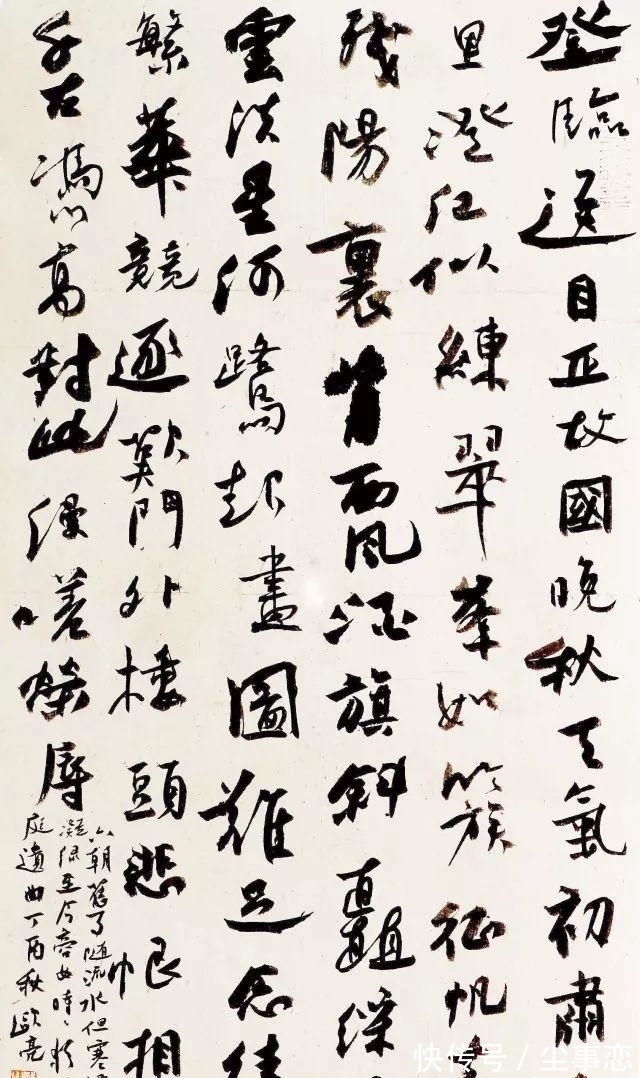 登臨送目正故國晚秋天氣初肅
里澄江似練翠峯如簇征帆
殘陽裏背西風酒旗斜矗綵
雲淡星河鷺起畫圖難足念往
繁華競逐歎門外樓頭悲恨相
千古憑高對此漫嗟榮辱
六朝舊事隨流水但寒
凝綠至今商女時〻猶
庭遺曲丁酉秋歐亮
快传号 / 尘事恋